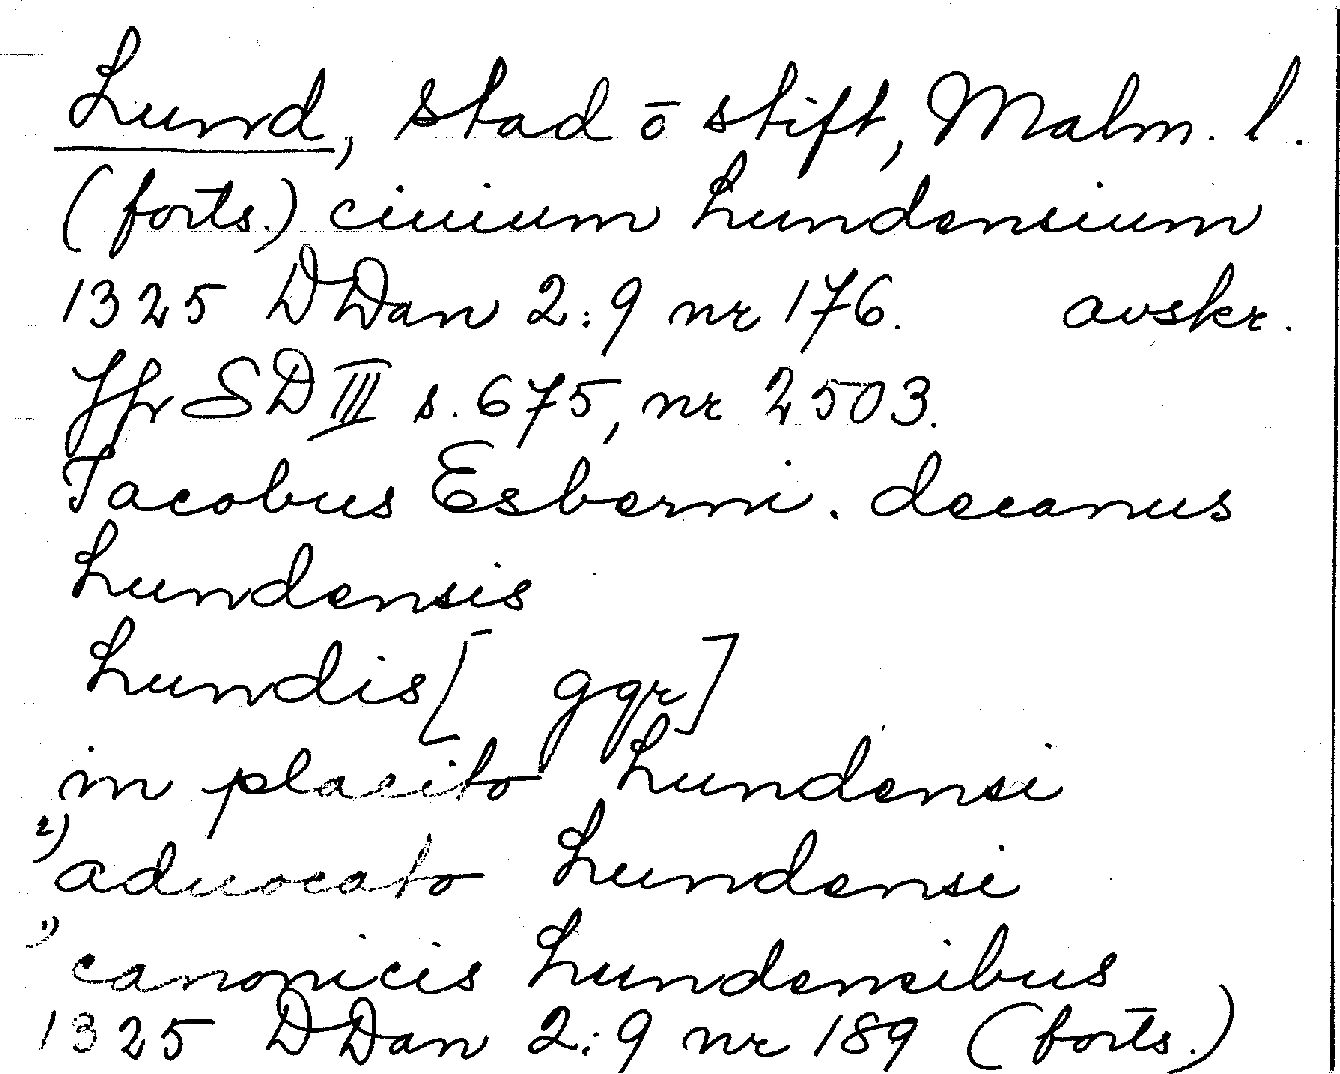 Lund, stad ō stift, Malm. l.
(forts.) ciuium Lundensium
1325 DDan 2:9 nr 176. avskr.
Jfr SD III s. 675, nr 2503.
Jacobus Esberni. decanus
Lundensis
Lundis [ ggr]
in placito Lundensi
2) aduocato Lundensi
1) canonicis Lundensibus
1325 DDan 2:9 nr 189 (forts.)